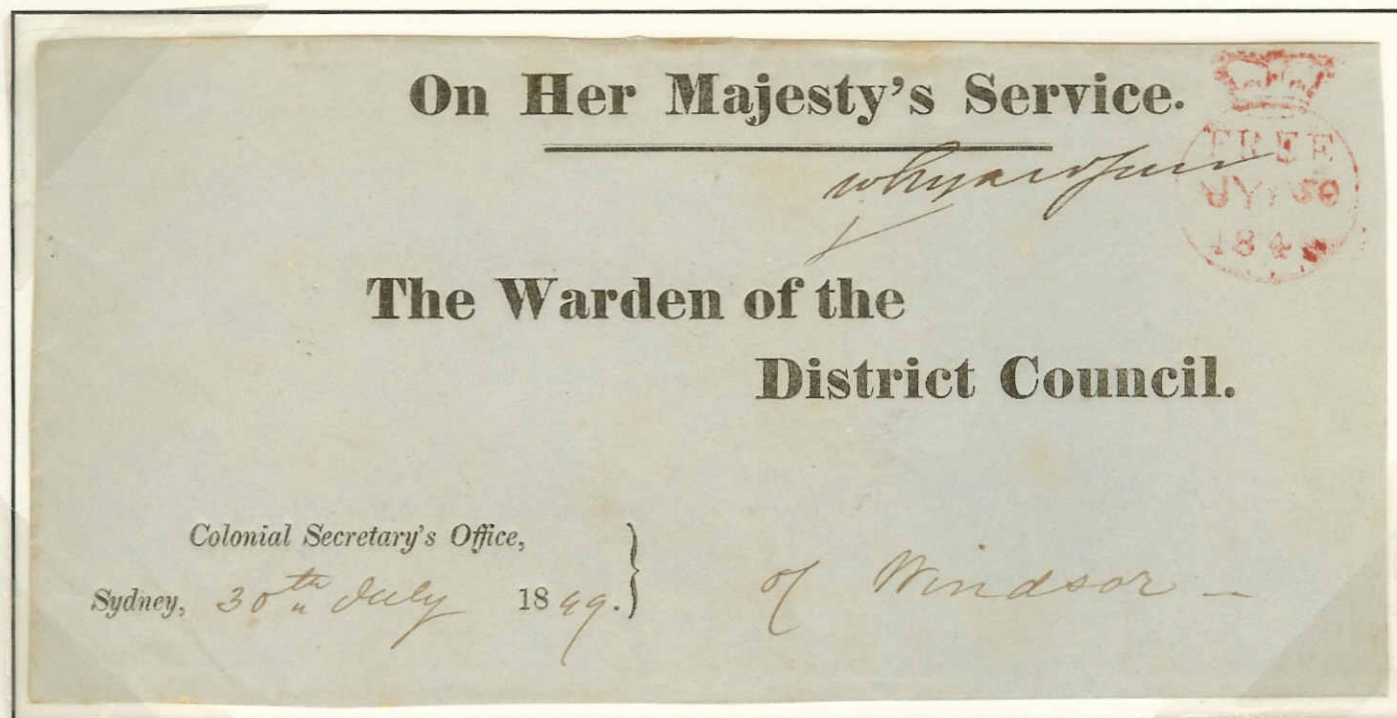 On Her Majesty's Service.
FREE
JY 30
184
The Warden of the
District Council.
Colonial Secretary's Office,
Sydney, 30th July 1849.
of Windsor —